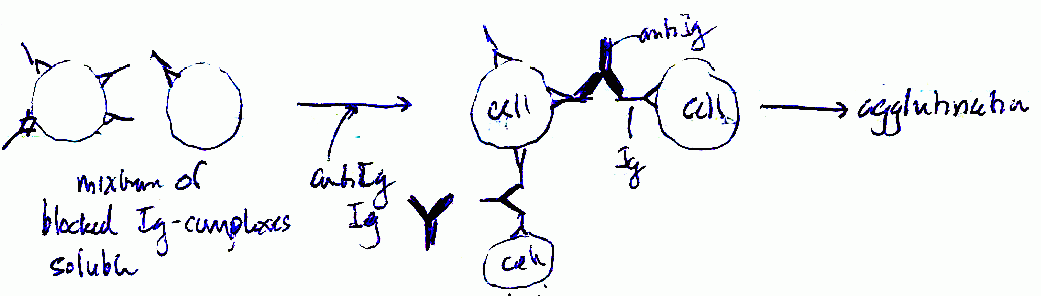 mixture of
blocked Ig-complexes
soluble
antiIg
Ig
cell
antiIg
Ig
cell
cell
agglutination